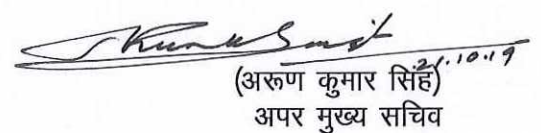 21.10.19
(अरूण कुमार सिंह)
अपर मुख्य सचिव